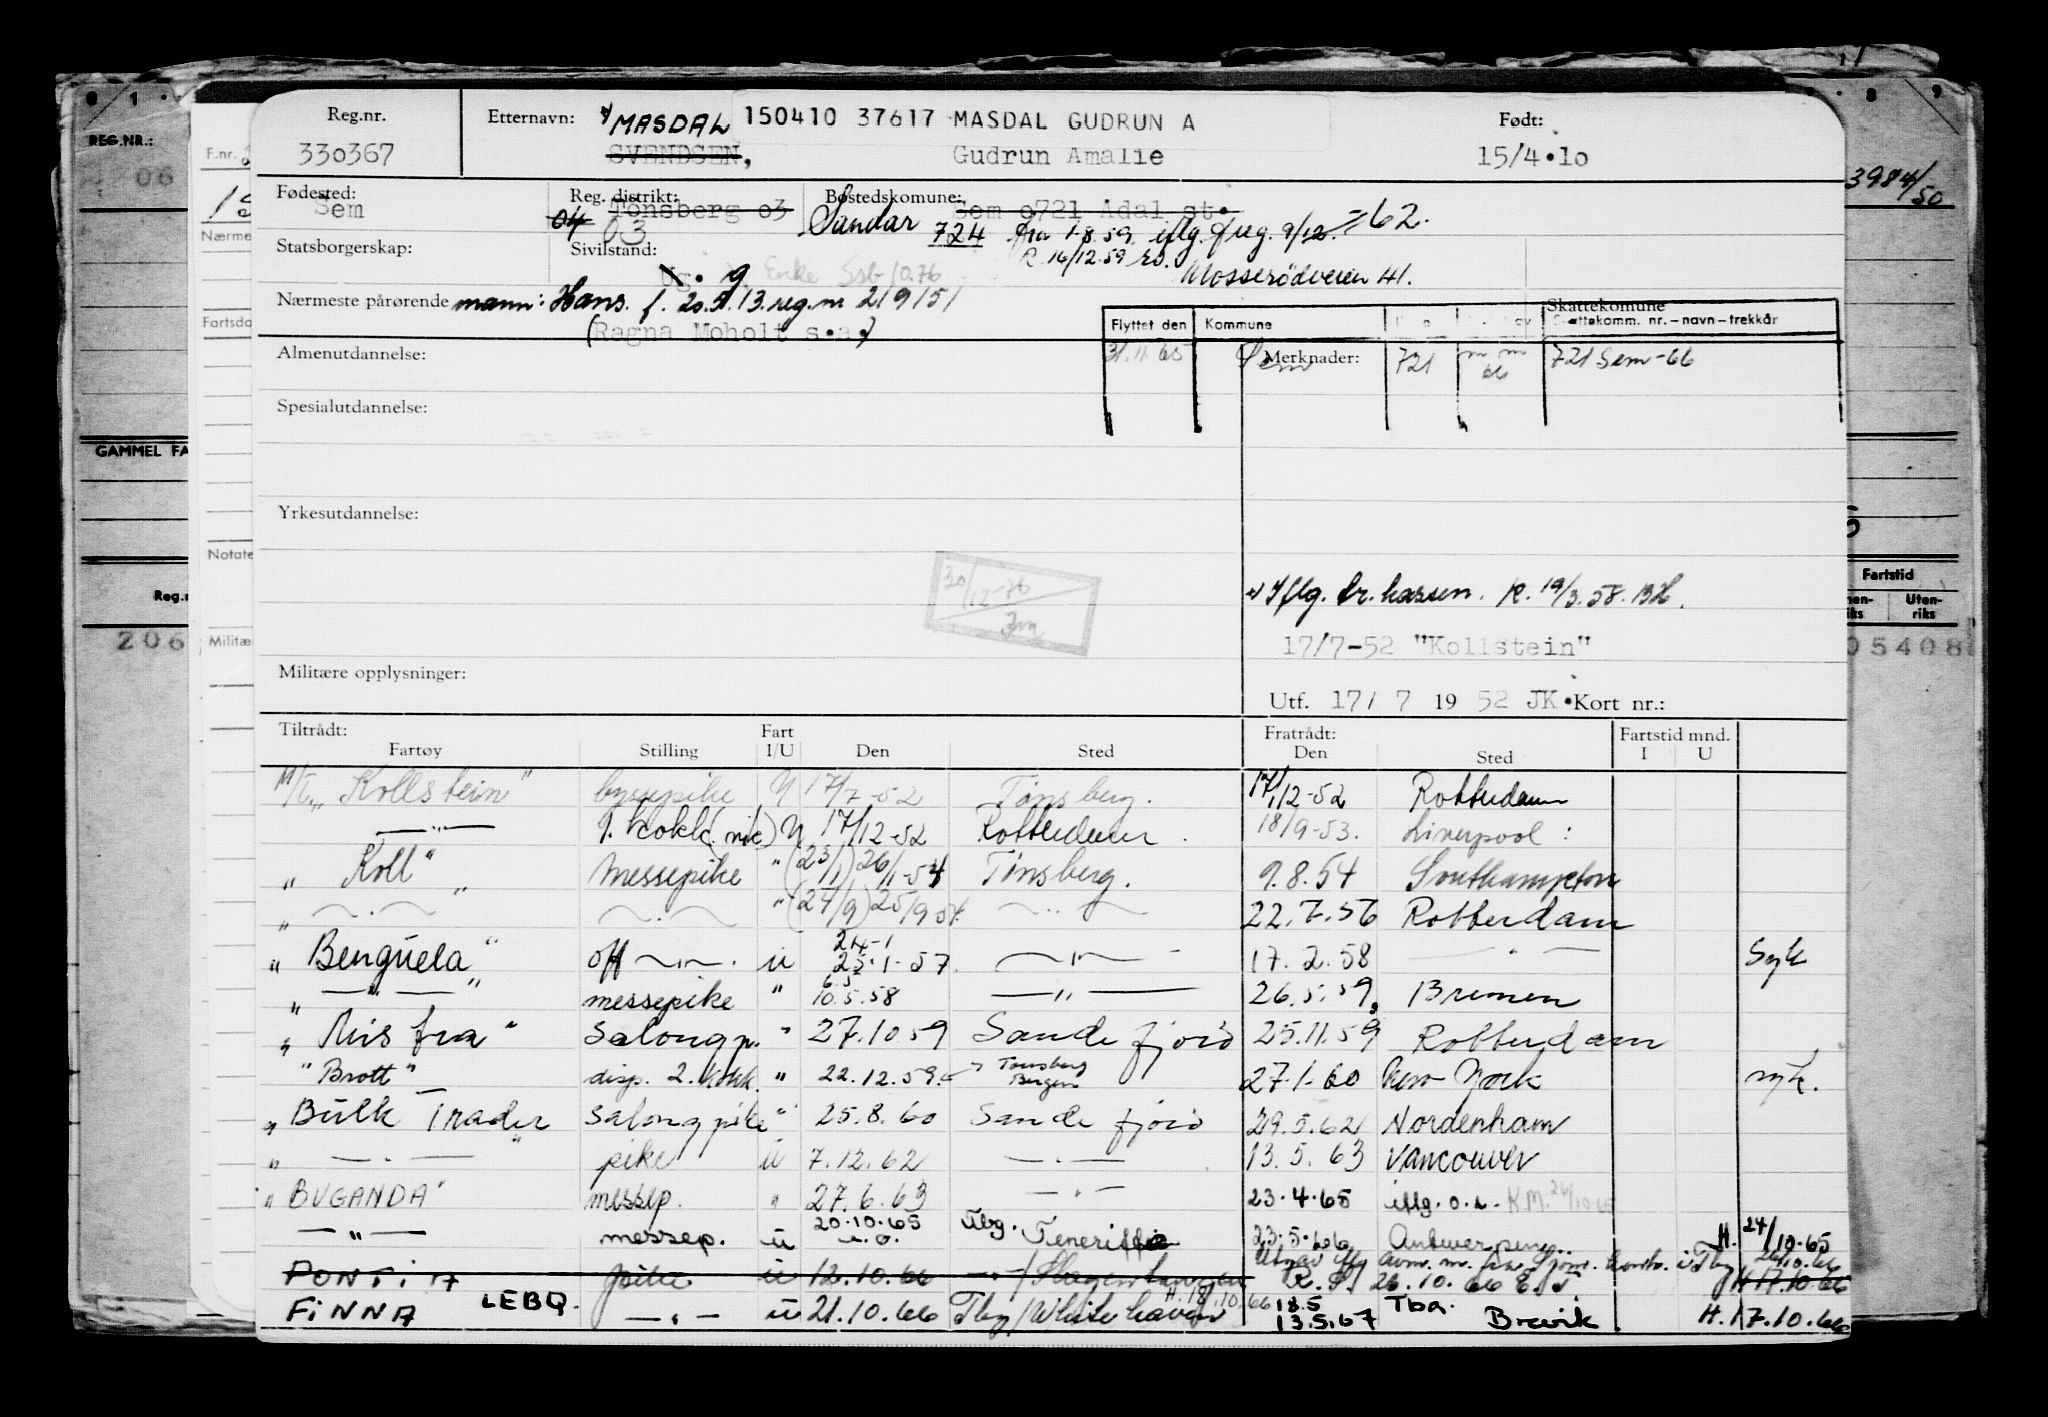 Reg.nr. Etternavn: MASDAL 150410 37617 MASDAL GUDRUN A Født:
330367 SVENDSEN, Gudrun Amalie 15/4.10
REG.NR.:
F.nr.
06
3984/50
Fødested: Reg. distrikt: Bostedskomune:
Sem Tønsberg 03 Sem 0721 Adal st.
04 03 Sandar 724 fra 1.8.59 iflg. 9/12 = 62.
Nærme
Statsborgerskap: Sivilstand: R. 16/12.59
Ug. g Enke Ssb 10.76 Mosserødveien 41.
Nærmeste pårørende mann: Hans. f. 20. 13. reg. nr 219151
(Ragna Moholt s.a.)
Skattekomune
Flyttet den Kommune Skattekomm. nr. – navn – trekkår
Fartsda
Almenutdannelse: 31.11.65 Sem Merknader: 721 66 721 Sem-66
Spesialutdannelse:
GAMMEL FA
Yrkesutdannelse:
Notate
30/12-76
Fartstid
Reg.n
Uten-
riks
Iflg. R. 19/3.58.
206
Militæ
17/7-52 "Kollstein"
05408
Militære opplysninger:
Utf. 17/ 7 19 52 JK. Kort nr.:
Tiltrådt: Fart Fratrådt: Fartstid mnd.
Fartøy Stilling I/U Den Sted Den Sted I U
M/T „ Kollstein" byssepike U 17/7-52 Tønsberg. 17/12-52 Rotterdam
— „ — 1. kokk U 17/12-52 Rotterdam. 18/9-53. Liverpool:
„ Koll" Messepike " (23/1) 26/1-54 Tønsberg. 9.8.54 Southampton
„ — . — — . — " (24/9) 25/9 54. — „ — 22.7.56 Rotterdam
„ Benguela" off — „ — . U 24-1 25.1-57. — „ — 17.2.58 — " — Syk
„ — „ — " messepike " 6.5 10.5.58 — „ — 26.5.59, Bremen
„ Misfra" Salongp. " 27.10 59 Sandefjord 25.11.59 Rotterdam
" Brott" disp. 2. kokk. " 22.12.59. Tønsberg Bergen 27.1-60 New York syk.
„ Bulk Trader" Salongpike " 25.8.60 Sandefjord 29.5.62 Nordenham
„ — . — pike U 7.12.62 — . — 13.5.63 Vancouver
„ BUGANDA" messep. " 27.6.63 — " — 23.4.65 iflg. o.l. K.M. 26/10-65
— „ — messep. U 20.10.65 Tbg. Teneriffa 23.5.66 Antwerpen H. 24/10.65
PONTIA pike U 12.10.66 R. 26.10.66 H 17.10.66
FINNA LEBQ — „ — U 21.10.66 Tbg/Whitehaven H. 18.10.66 18.5 13.5.67 Tbg. Brevik H. 17.10.66